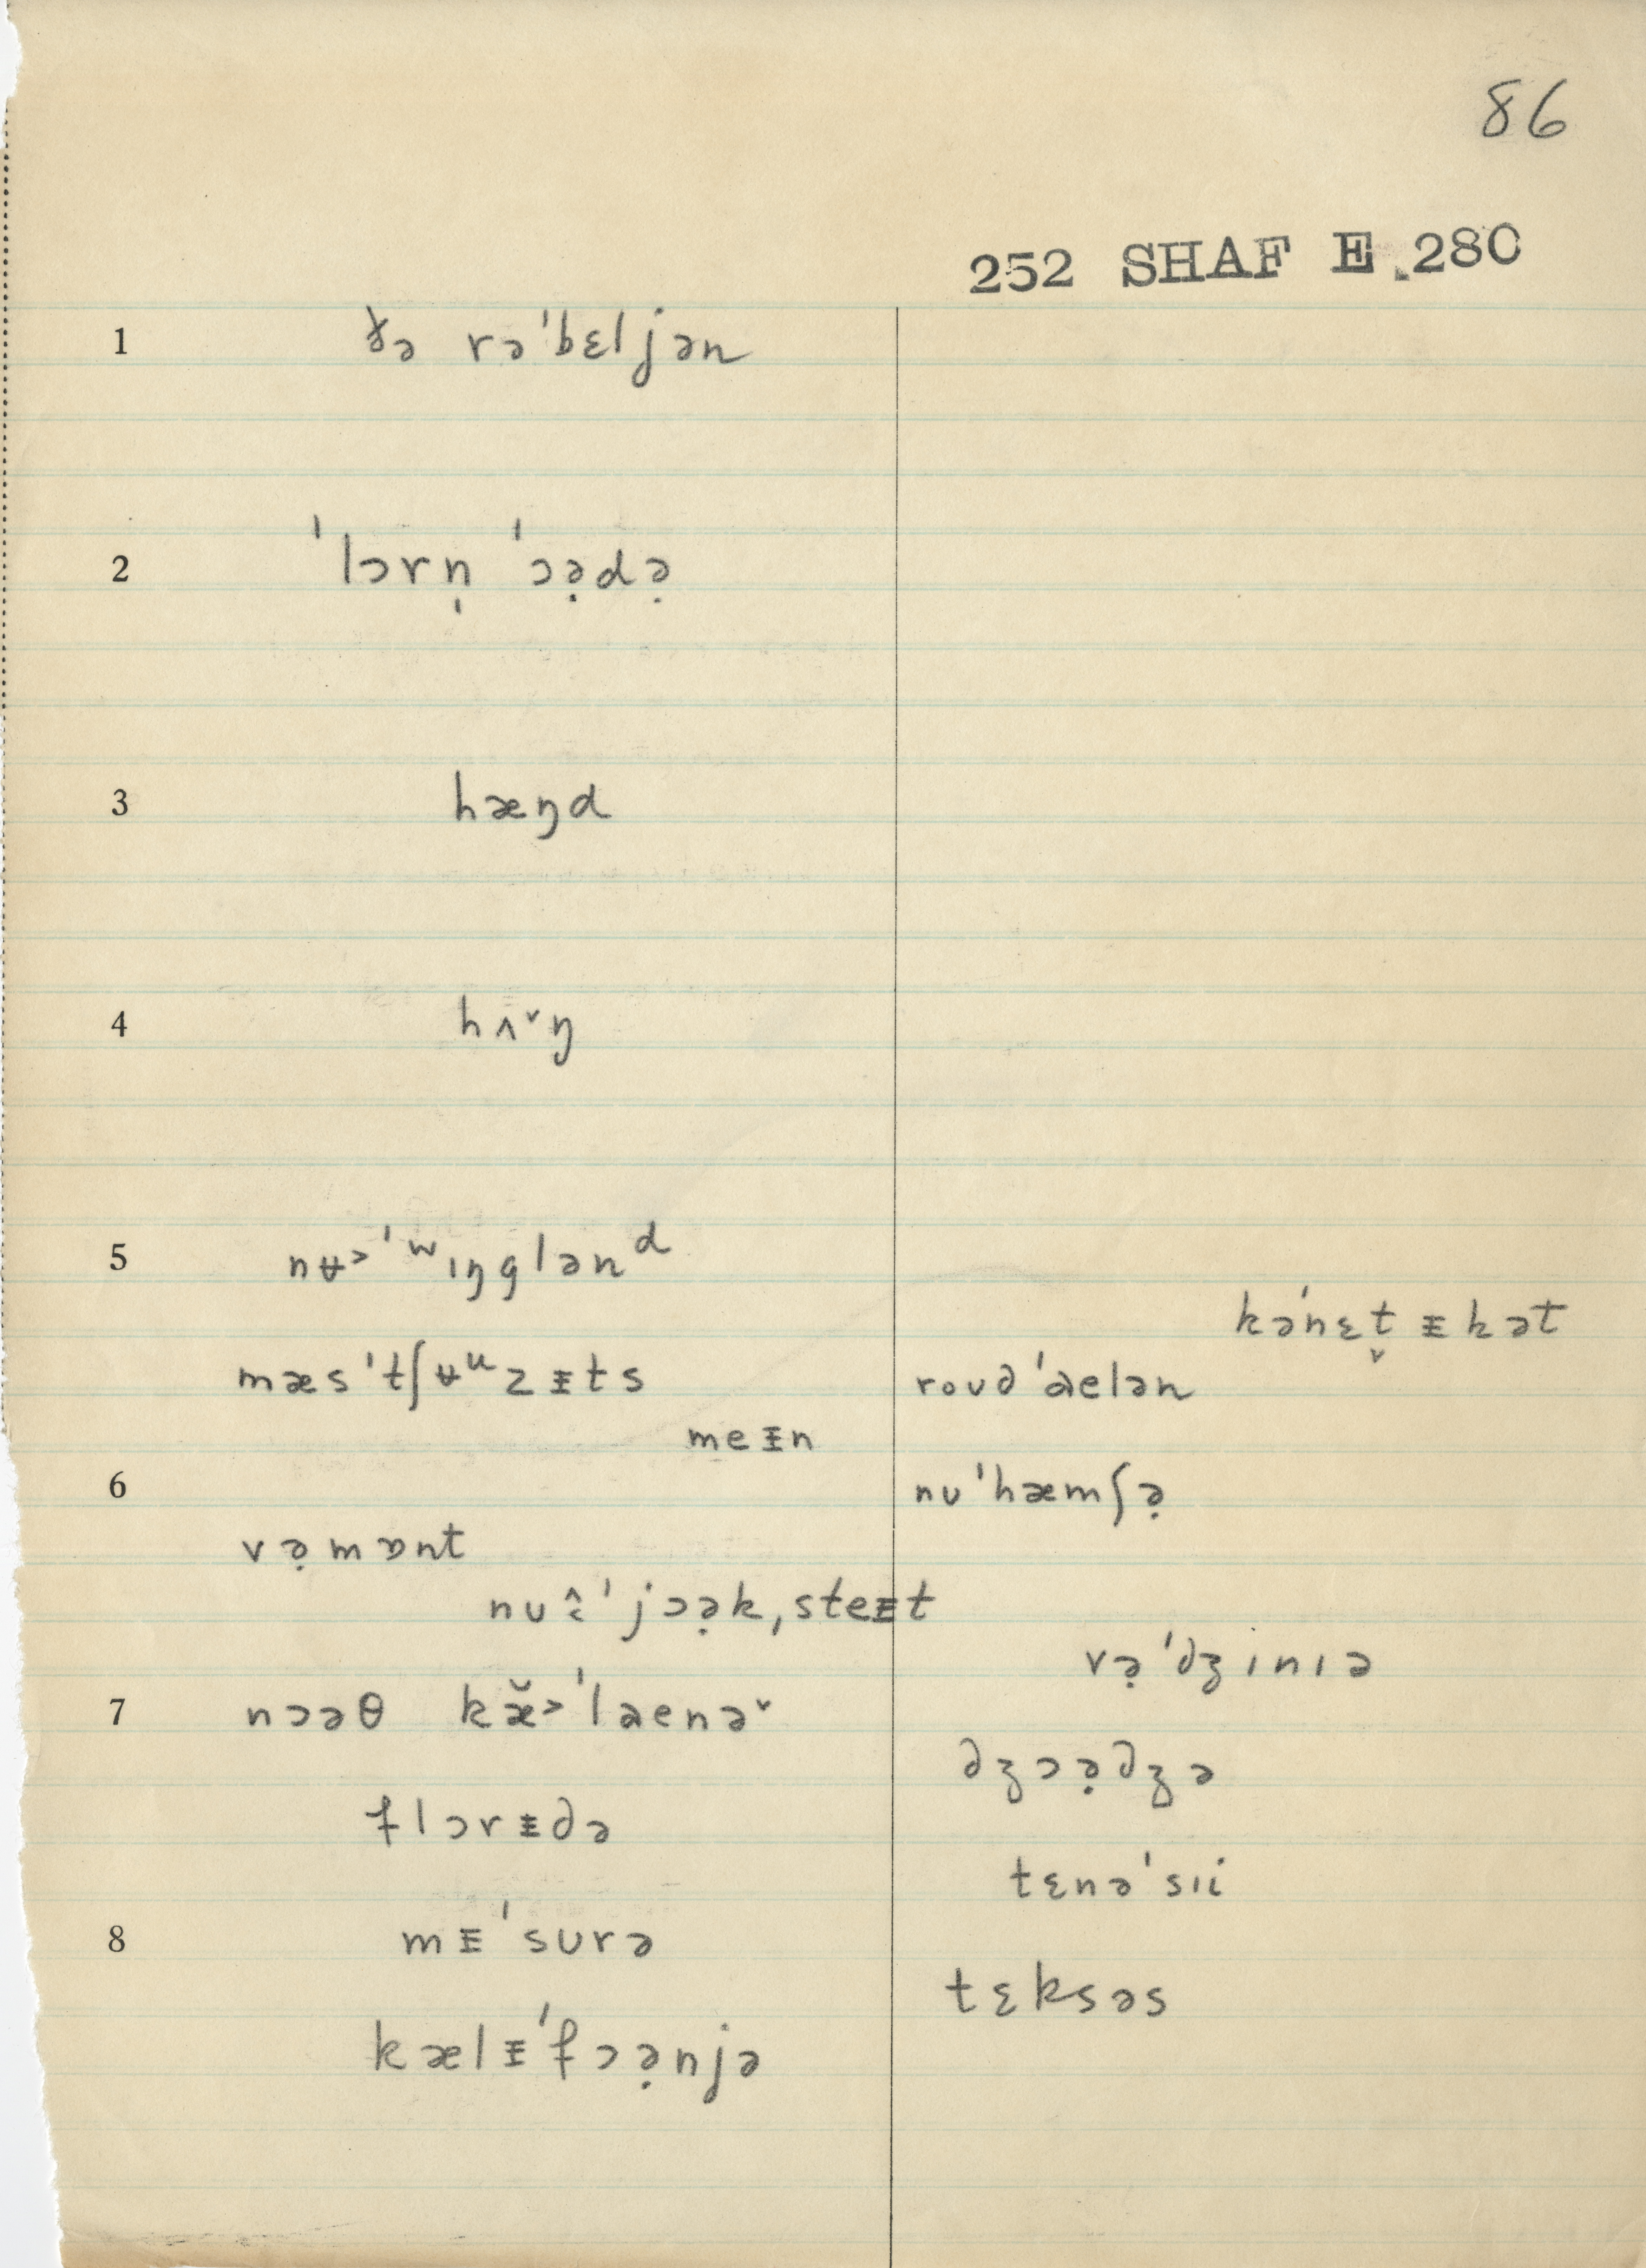 86
252 SHAF E 280
1 ðə rə'bɛljən
2 'lɔrn̩ 'ɔə̣də̣
3 hæŋd
4 hʌ˅ŋ
5 nʉ˃'ʷɪŋglənᵈ
kə'nɛt̬ᵻkət
mæs'tʃʉᵘzᵻts roʊd'aelən
meᵻn
6 nʊ'hæmʃə̣
və̣mɒnt
nʊ'jɔə̣k,steᵻt
və̣'dʒɪnɪə
7 nɔəθ kæ̆˃'laenə˅
dʒɔə̣dʒə
flɔrᵻdə
tɛnə'sɪi
8 mᵻ'sʊrə
tɛksəs
kælᵻ'fɔə̣njə